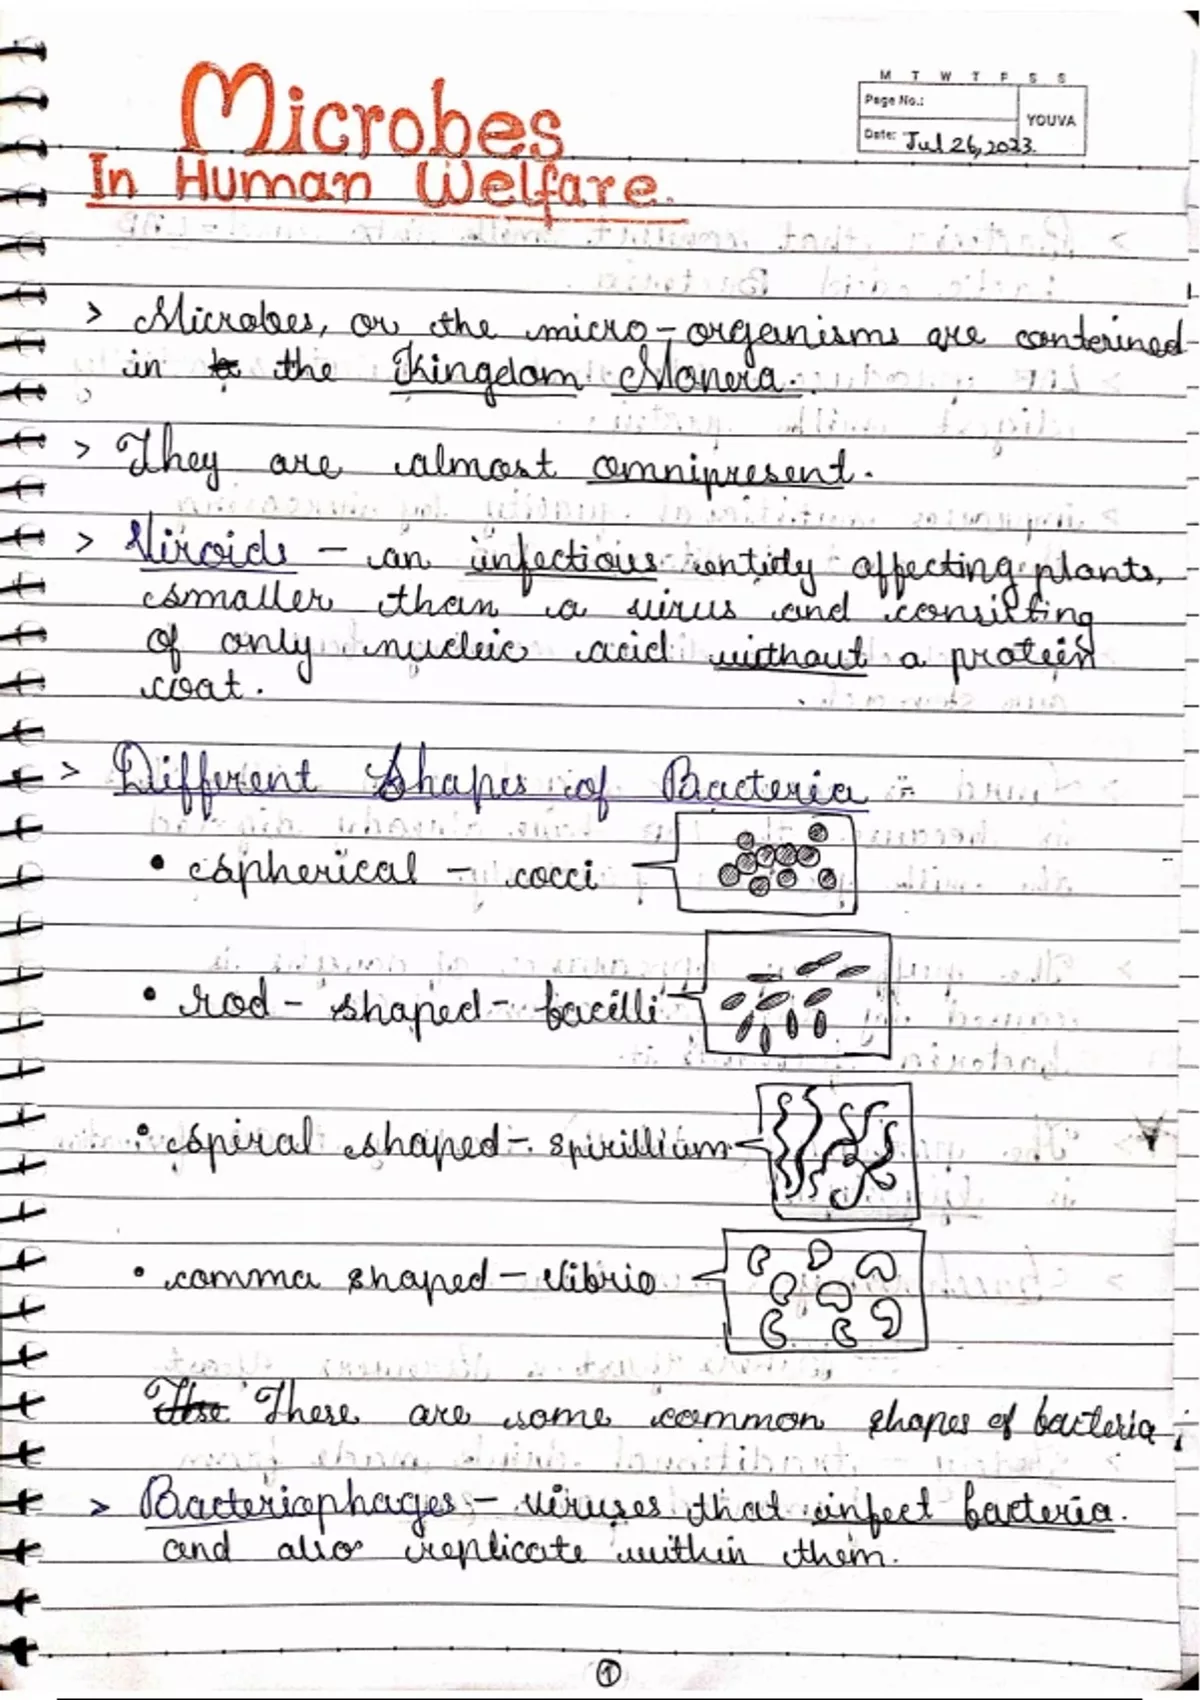 Microbes
In Human Welfare.
M T W T F S S
Page No.:
YOUVA
Date: Jul 26, 2023.
> Microbes, or the micro-organisms are contained
in the Kingdom Monera.
> They are almost omnipresent.
> Viroids – an infectious entity affecting plants,
smaller than a virus and consisting
of only nucleic acid without a protein
coat.
> Different Shapes of Bacteria :-
• spherical – cocci
• rod - shaped - bacilli
• spiral shaped - spirillium
• comma shaped – Vibrio
These are some common shapes of bacteria ;
> Bacteriophages – viruses that infect bacteria.
and also replicate within them.
1